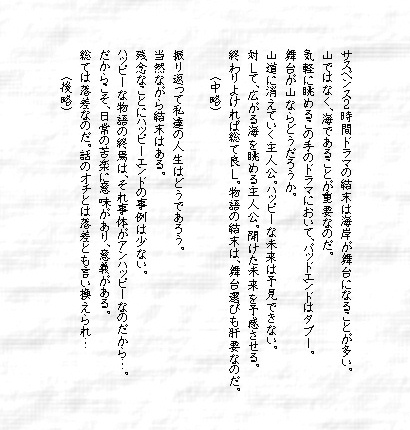 サスペンス2時間ドラマの結末は海岸が舞台になることが多い。
山ではなく、海であることが重要なのだ。
気軽に眺めるこの手のドラマにおいて、バッドエンドはタブー。
舞台が山ならどうだろうか。
山道に消えていく主人公。ハッピーな未来は予見できない。
対して、広がる海を眺める主人公。開けた未来を予感させる。
終わりよければ総て良し。物語の結末は、舞台選びも肝要なのだ。
(中略)
振り返って私達の人生はどうであろう。
当然ながら結末はある。
残念なことにハッピーエンドの事例は少ない。
ハッピーな物語の終焉は、それ事体がアンハッピーなのだから…。
だからこそ、日常の苦楽に意味があり、意義がある。
総ては落差なのだ。話のオチとは落差とも言い換えられ…
(後略)